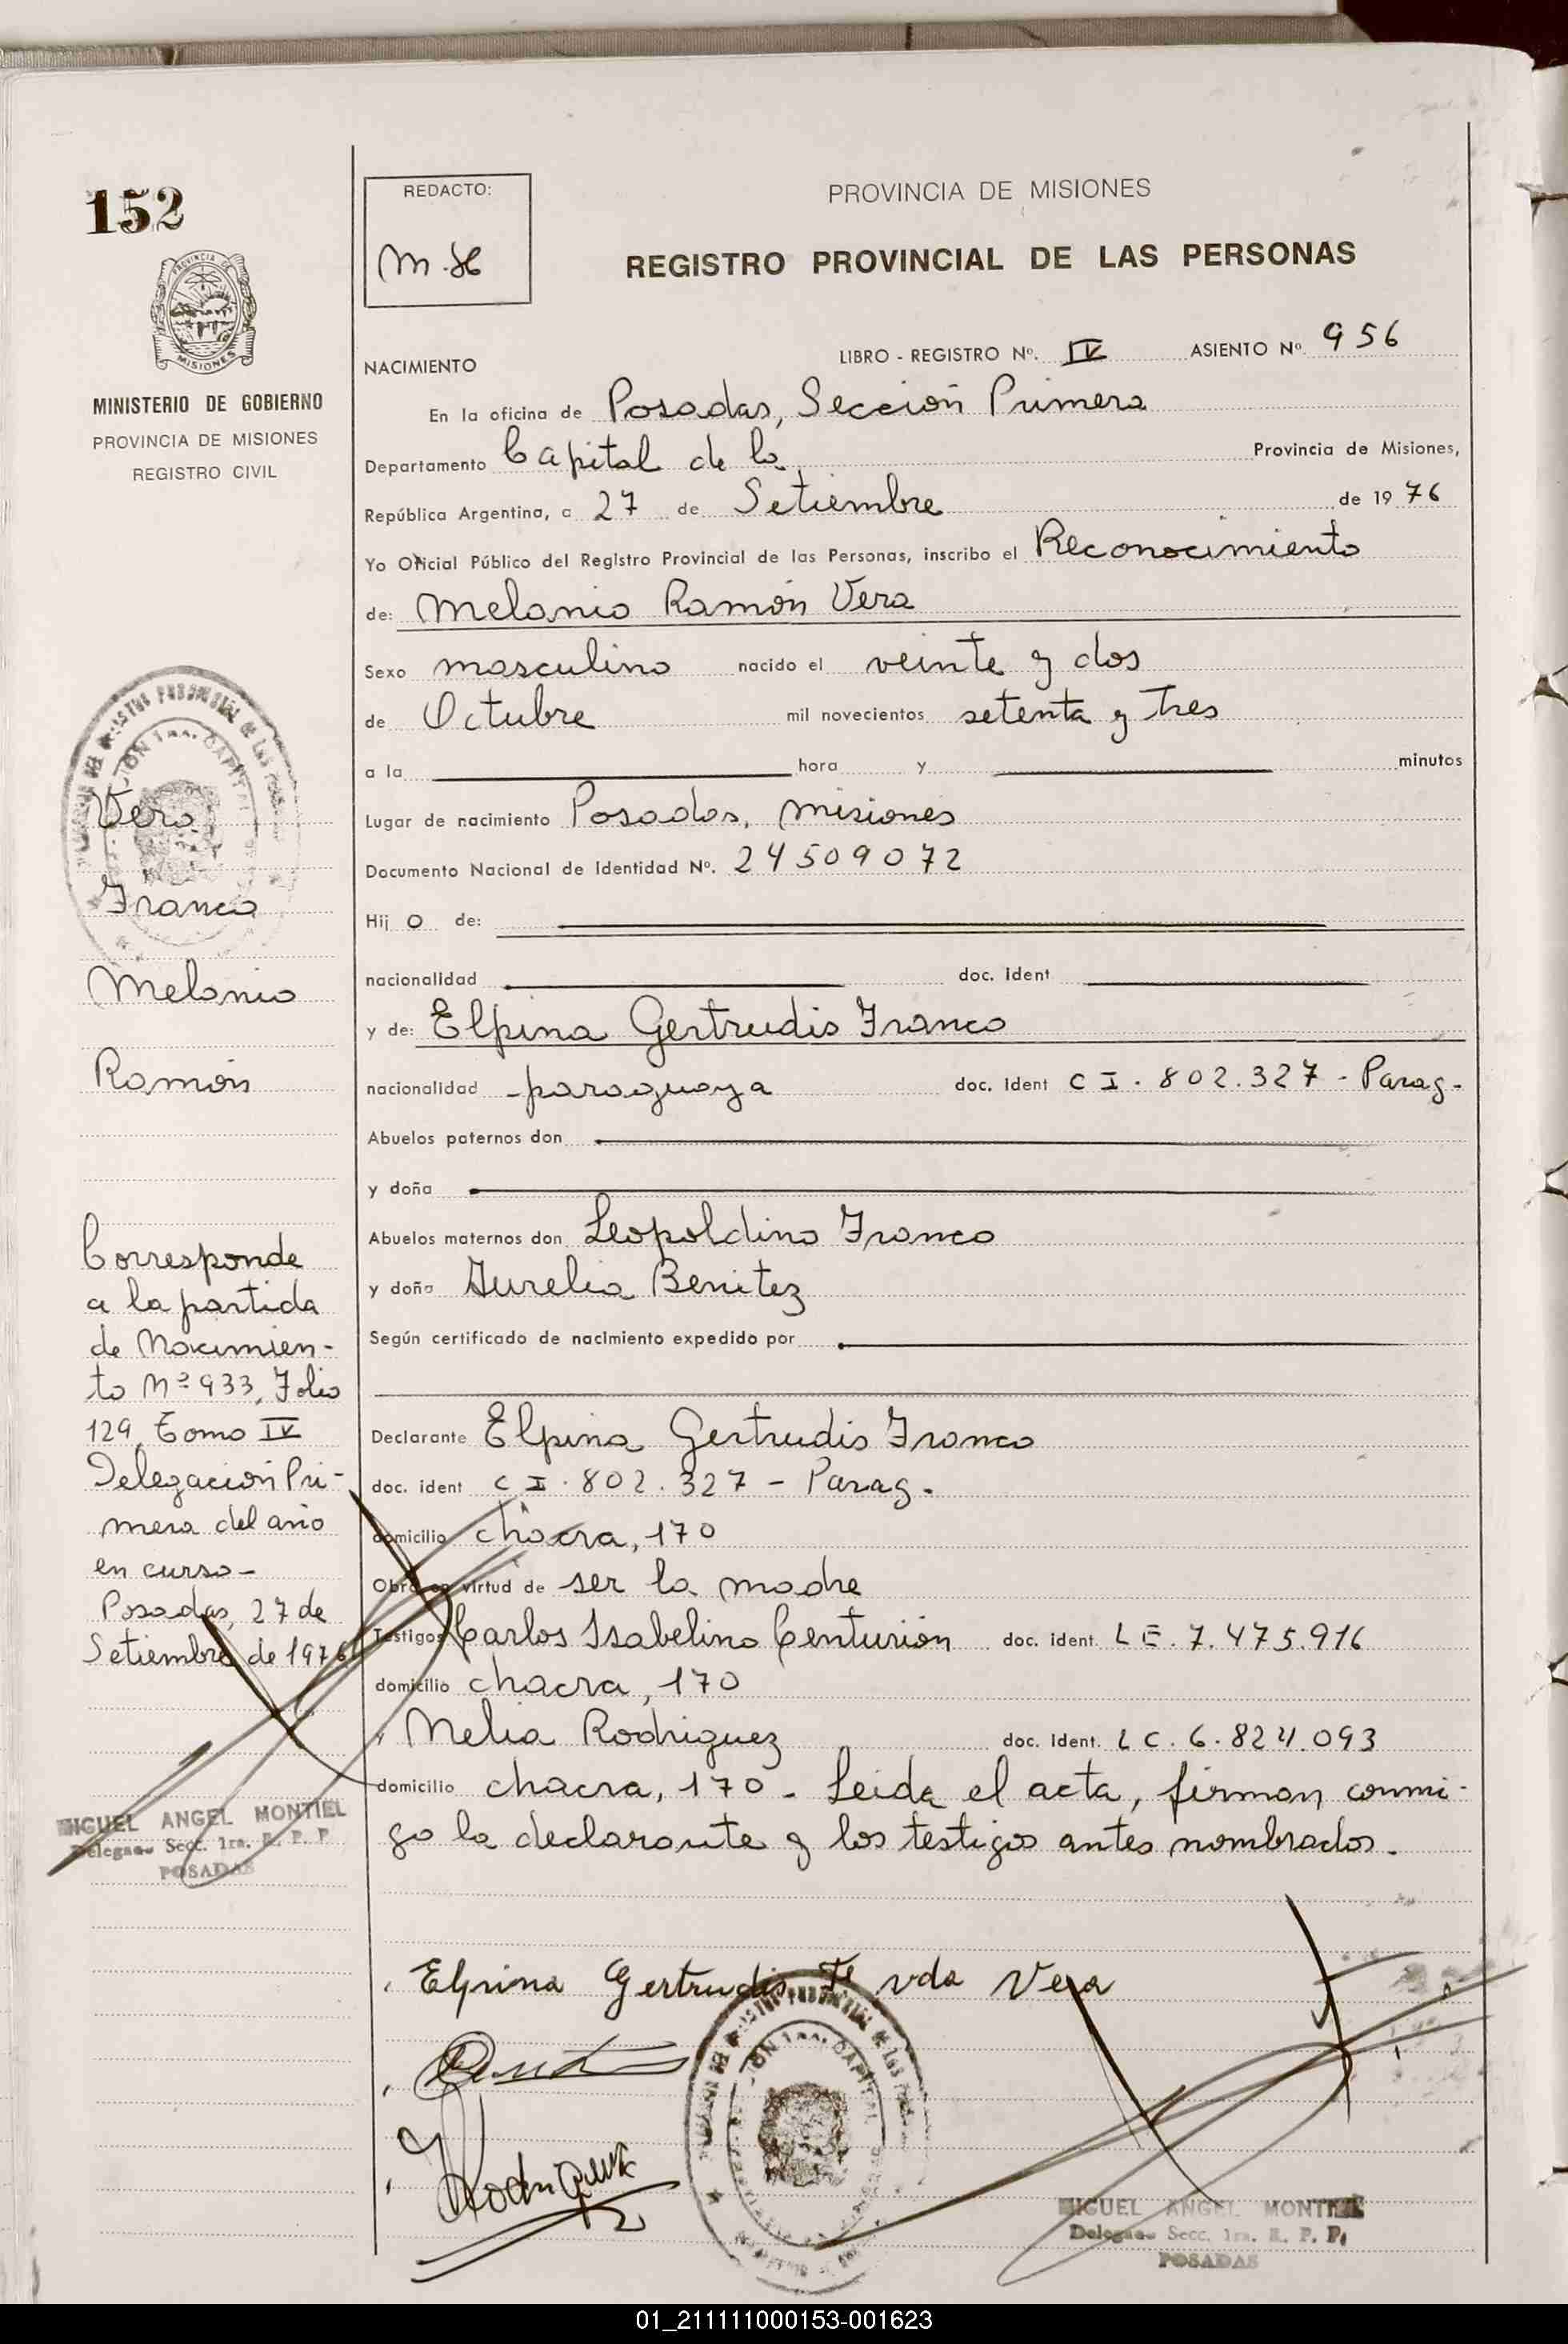 152
PROVINCIA DE
MISIONES
MINISTERIO DE GOBIERNO
PROVINCIA DE MISIONES
REGISTRO CIVIL
Vera
Franco
Melanio
Ramón
Corresponde
a la partida
de Nacimien-
to Nº 933, Folio
129, Tomo IV
Delegación Pri-
mera del año
en curso-
Posadas, 27 de
Setiembre de 1976
MIGUEL ANGEL MONTIEL
Secc. 1ra. R. P. P.
POSADAS
REDACTO:
PROVINCIA DE MISIONES
REGISTRO PROVINCIAL DE LAS PERSONAS
NACIMIENTO LIBRO - REGISTRO Nº. IV ASIENTO Nº. 956
En la oficina de Posadas, Sección Primera
Departamento Capital de la Provincia de Misiones,
República Argentina, a 27 de Setiembre de 1976
Yo Oficial Público del Registro Provincial de las Personas, inscribo el Reconocimiento
de: Melanio Ramón Vera
Sexo masculino nacido el veinte y dos
de Octubre mil novecientos setenta y Tres
a la hora y minutos
Lugar de nacimiento Posadas, Misiones
Documento Nacional de Identidad Nº. 24509072
Hij o de:
nacionalidad doc. ident
y de: Elpina Gertrudis Franco
nacionalidad paraguaya doc. ident C I. 802.327 - Parag.
Abuelos paternos don
y doña
Abuelos maternos don Leopoldino Franco
y doña Aurelia Benitez
Según certificado de nacimiento expedido por
Declarante Elpina Gertrudis Franco
doc. ident C I. 802.327 - Parag.
domicilio chacra, 170
Obra en virtud de ser la madre
Testigos Carlos Isabelino Centurión doc. ident. L E. 7.475.916
domicilio chacra, 170
Melia Rodriguez doc. ident. L C. 6.824.093
domicilio chacra, 170. Leida el acta, firman conmi-
go la declarante y los testigos antes nombrados.
Elpina Gertrudis F vda Vera
Rodriguez
MIGUEL ANGEL MONTIEL
Secc. 1ra. R. P. P.
POSADAS
01_211111000153-001623